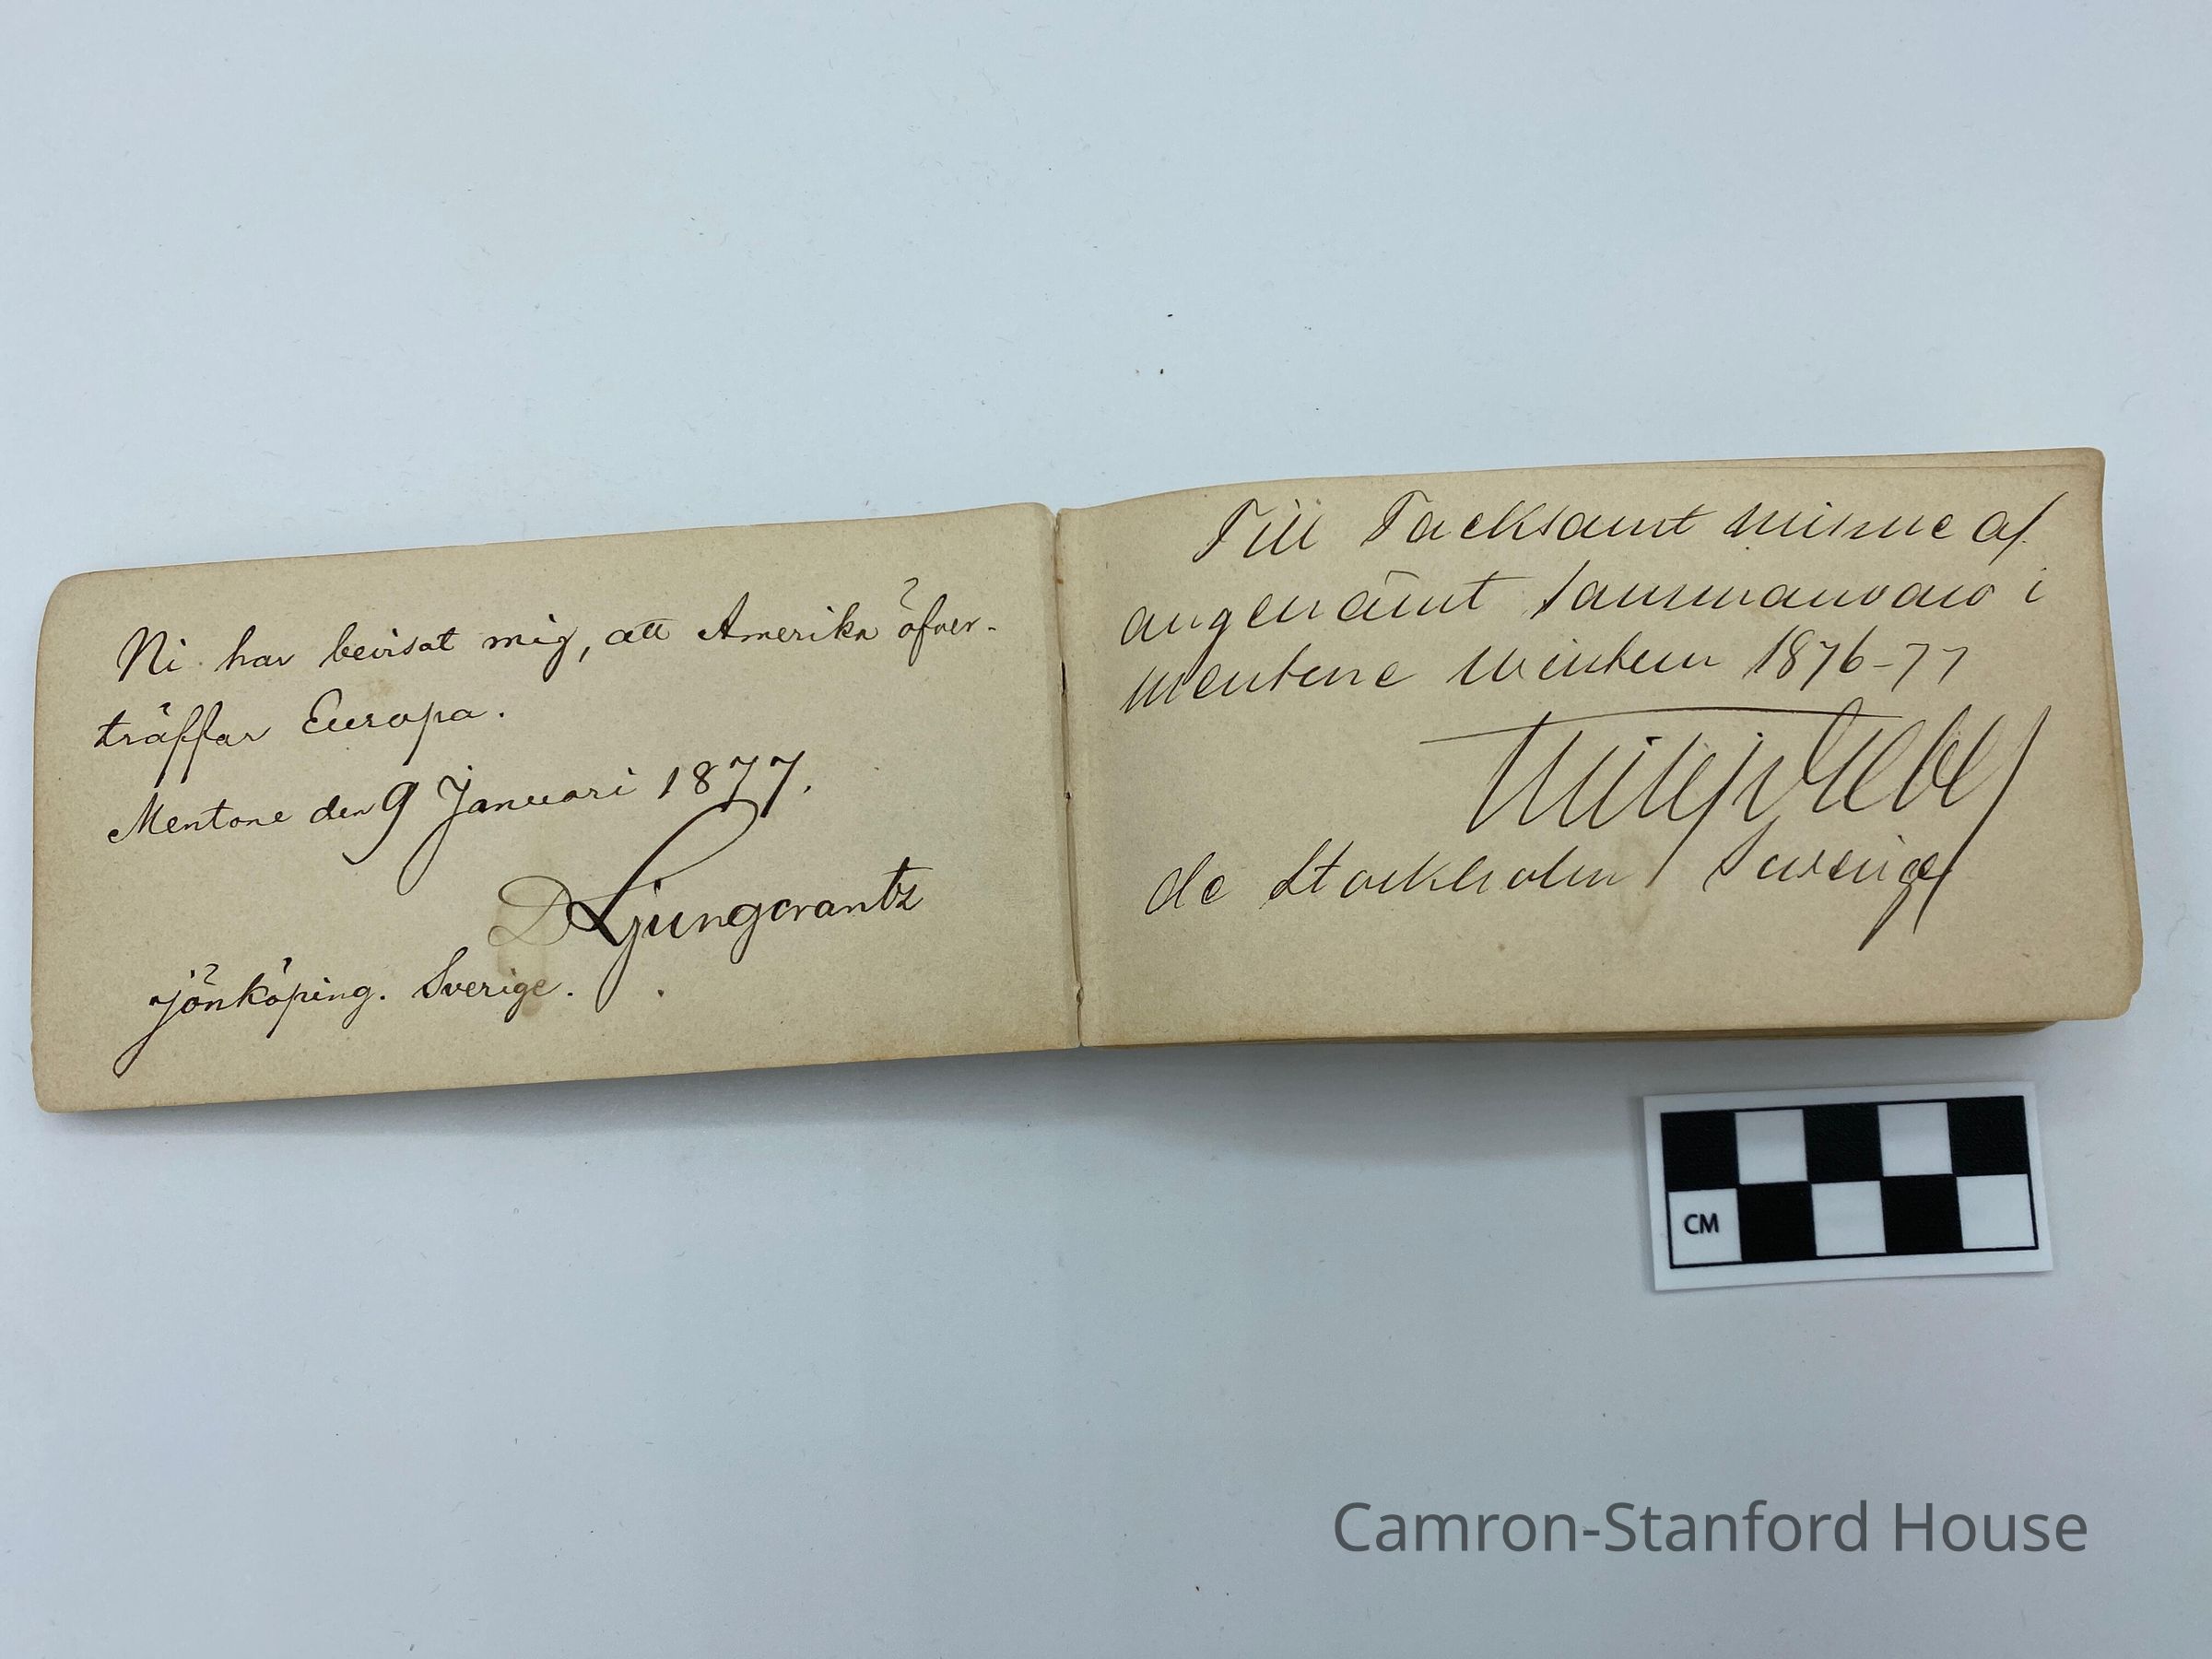 Ni har bevisat mig, att Amerika öfver-
träffar Europa.
Mentone den 9 Januari 1877.
D Ljungcrantz
Jönköping. Sverige.
Till Tacksamt minne af
angenämt sammanvaro i
Mentone Wintern 1876-77
de Stockholm Sverige
CM
Camron-Stanford House